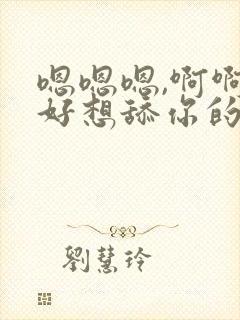 嗯嗯嗯,啊啊
好想舔你的
劉慧玲